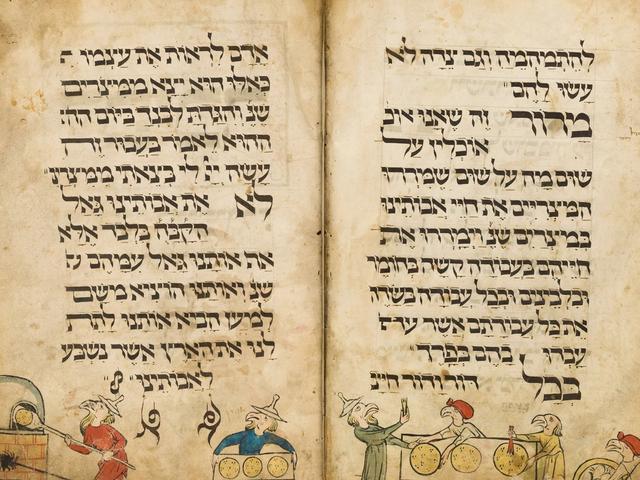 להתמהמה וגם צדה לא
עשו להם
מרור זה שאנו אוכ
אוכלין על
שום מה על שום שמררו
המצריים את חיי אבותינו
במצריים שנ' וימררו את
חייהם בעבודה קשה בחומר
ובלבינים ובכל עבודה בשדה
את כל עבודתם אשר
עבדו בהם בפרך
בכל דור ודור חייב
אדם לראות את עצמו
כאלו הוא יצא ממצרים
שנ' והגדת לבנך ביום
ההוא לאמר בעבור זה
עשה יי לי בצאתי ממצרים
לא את אבותינו גאל
הקבה בלבד אלא
את אותנו גאל עמהם
שנ' ואותנו הוציא משם
למען הביא אותנו לתת
לנו את הארץ אשר נשבע
לאבותינו